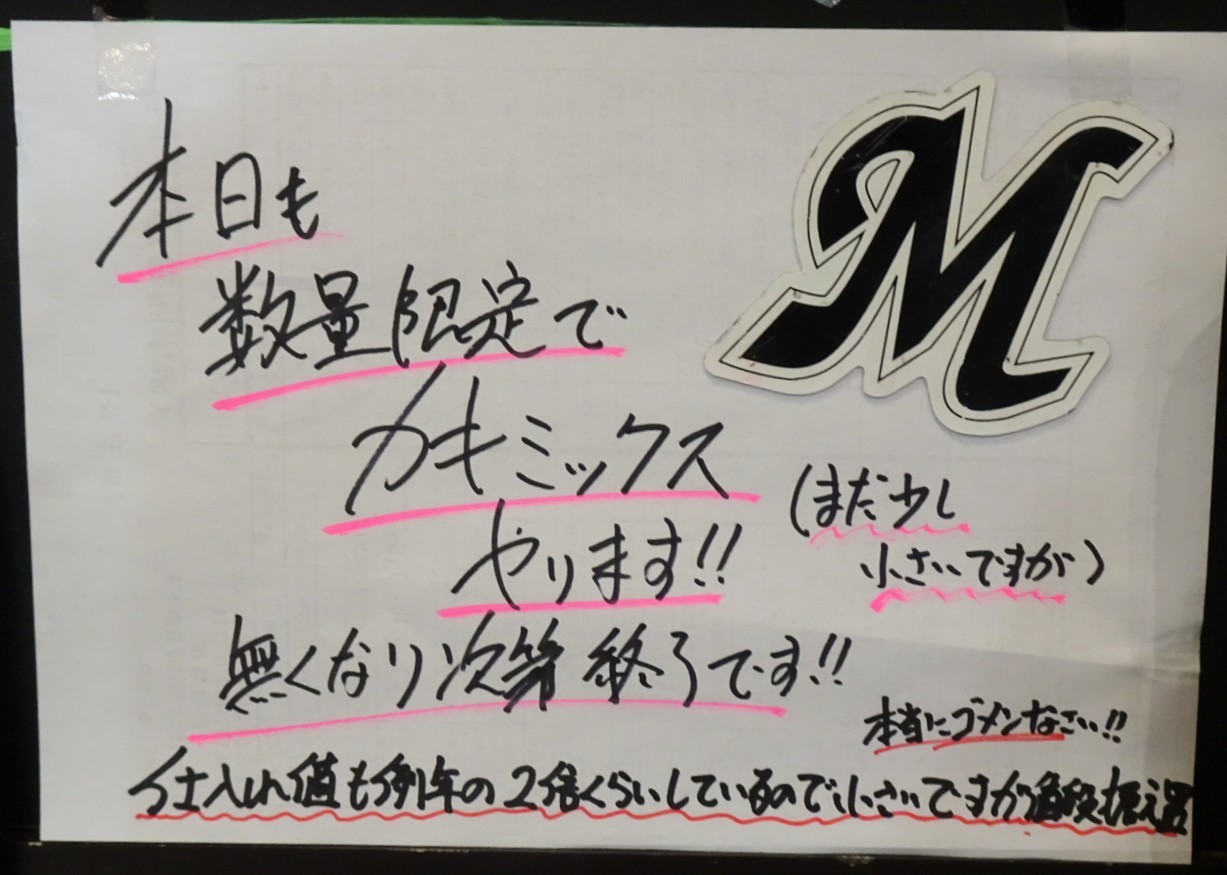 本日も
M
数量限定で
カキミックス
(まだ少し
小さいですが)
やります!!
無くなり次第終了です!!
本当にゴメンなさい!!
仕入れ値も例年の2倍くらいしているので小さいですが値段据え置